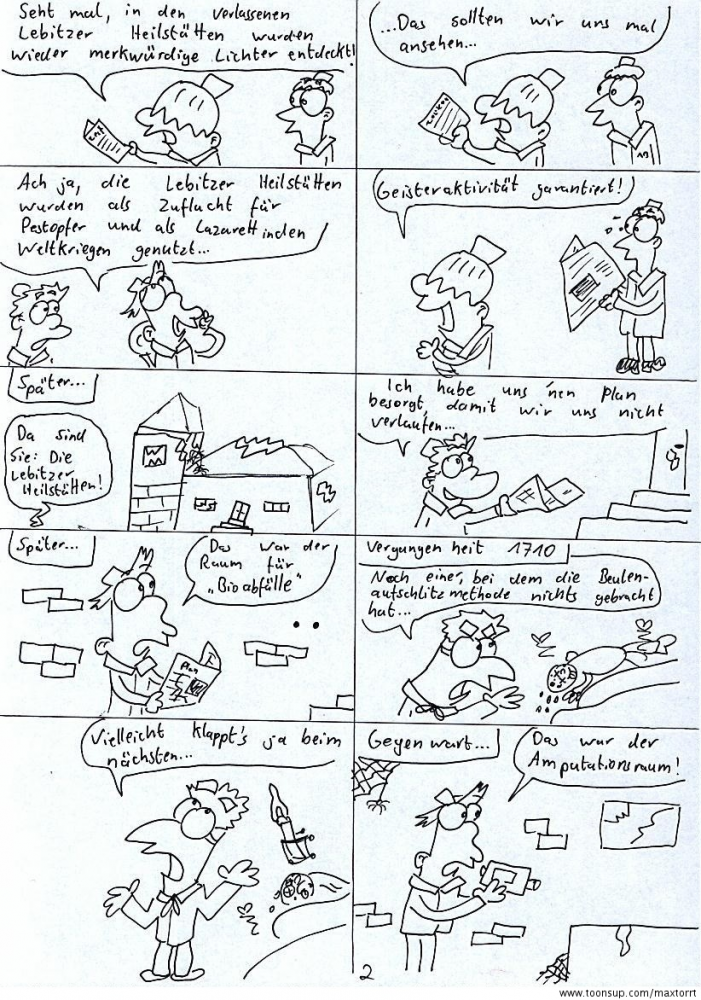 Seht mal, in den verlassenen
Lebitzer Heilstätten wurden
wieder merkwürdige Lichter entdeckt!
...Das sollten wir uns mal
ansehen...
Ach ja, die Lebitzer Heilstätten
wurden als Zuflucht für
Pestopfer und als Lazarett in den
Weltkriegen genutzt...
Geisteraktivität garantiert!
Später...
Da sind
sie: Die
Lebitzer
Heilstätten!
Ich habe uns 'nen Plan
besorgt, damit wir uns nicht
verlaufen...
Später...
Das war der
Raum für
„Bioabfälle"
Plan
Vergangenheit 1710
Noch einer, bei dem die Beulen-
aufschlitzmethode nichts gebracht
hat...
Vielleicht klappt's ja beim
nächsten...
Gegenwart...
Das war der
Amputationsraum!
2
www.toonsup.com/maxtorrt